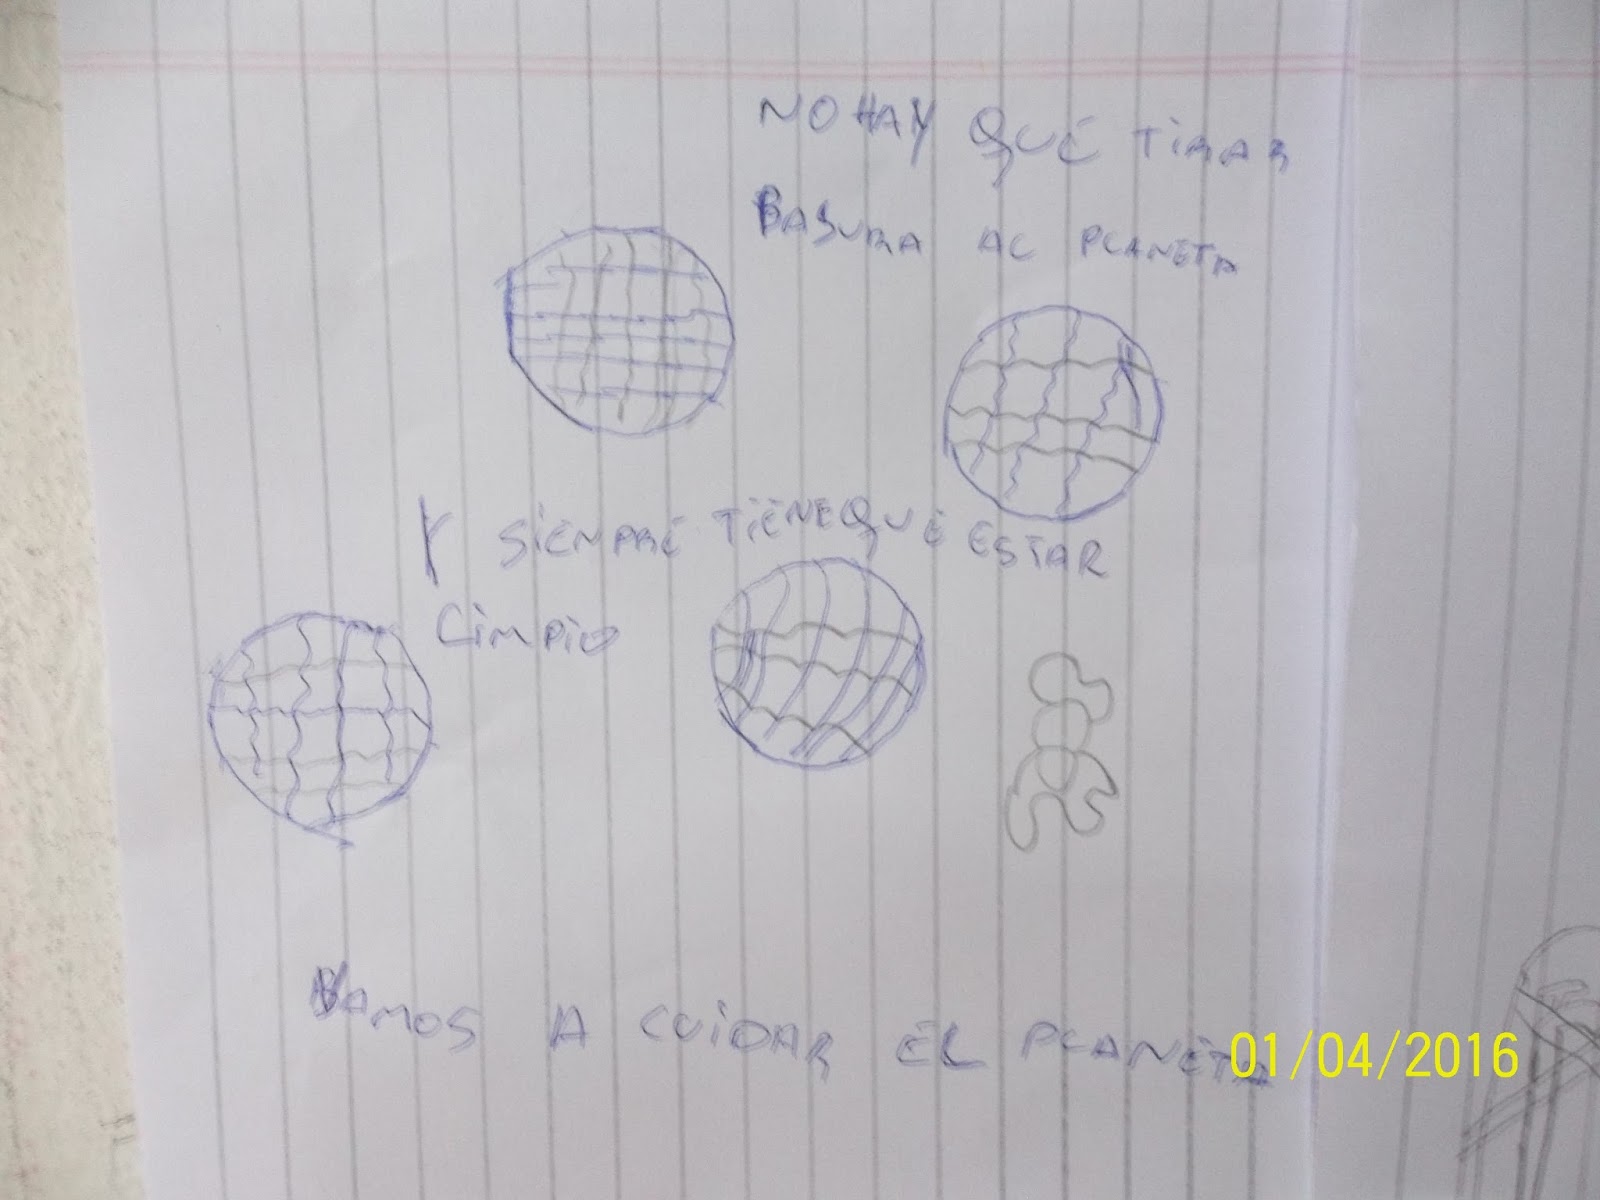 NO HAY QUE TIRAR
BASURA AL PLANETA
Y SIENPRE TIENE QUE ESTAR
LIMPIO
VAMOS A CUIDAR EL PLANETA
01/04/2016